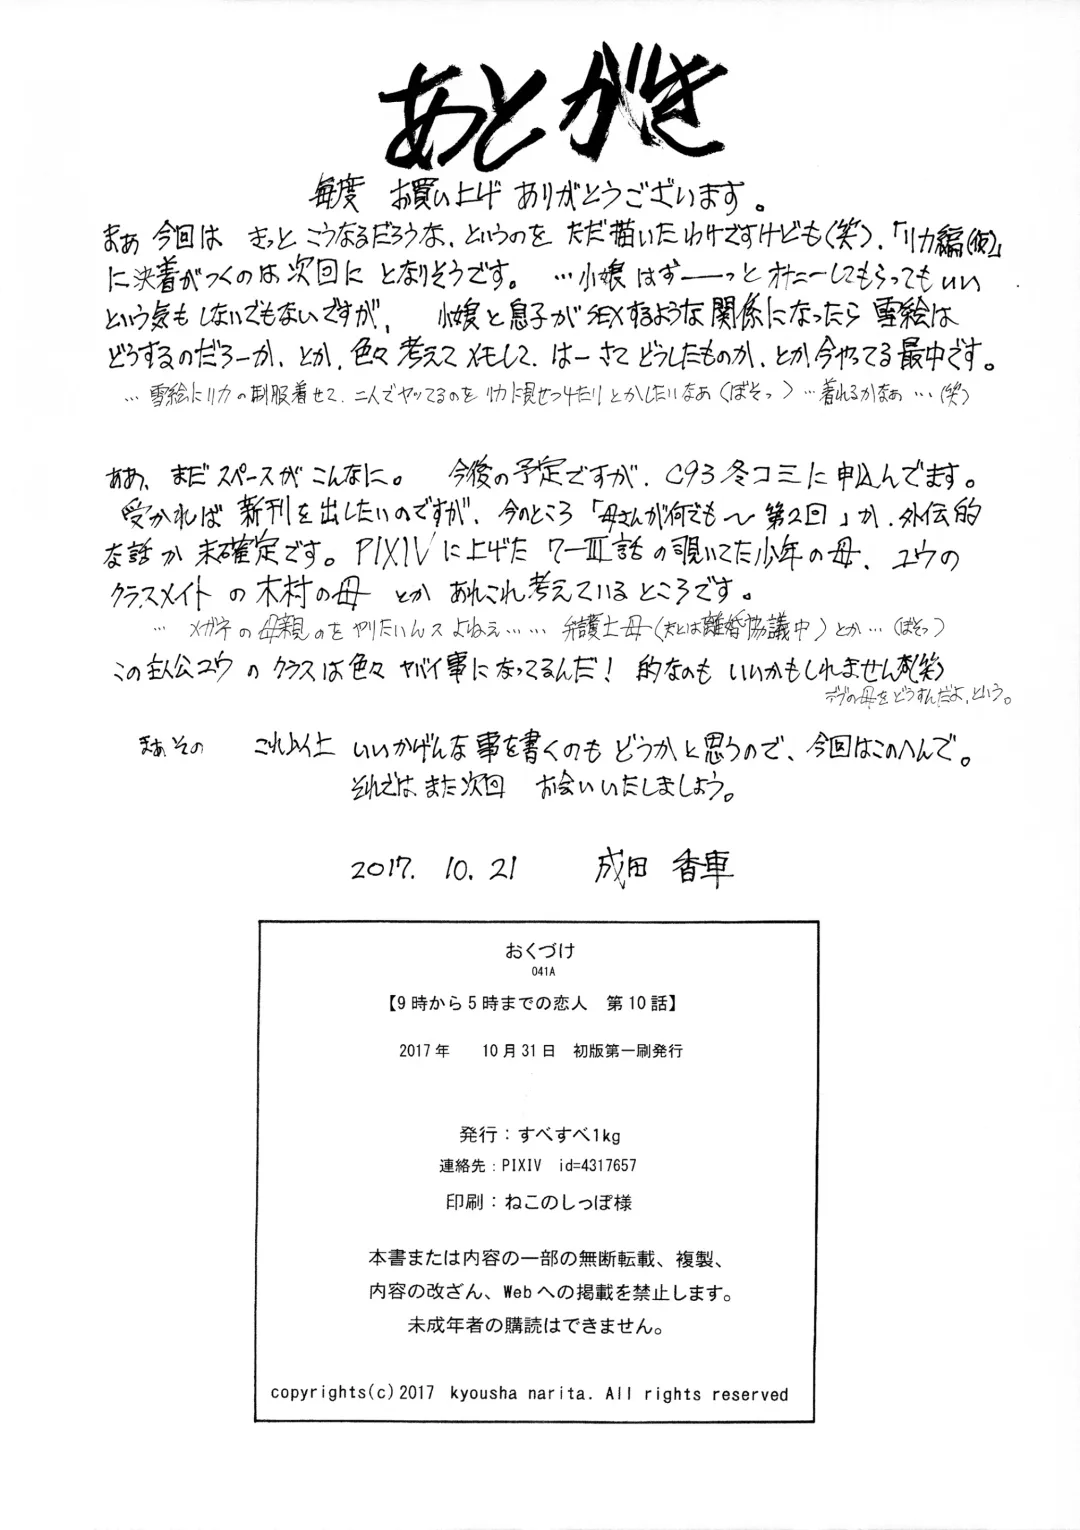 あとがき
毎度 お買い上げ ありがとうございます。
まぁ 今回は きっと こうなるだろうな、というのを ただ描いたわけですけども(笑)、「リカ編(仮)」
に決着がつくのは次回に となりそうです。 …小娘はずーーっと オナニーしてもらってもいい
という気もしないでもないですが、 小娘と息子がSEXするような関係になったら 雪絵は
どうするのだろーか、とか、色々 考えて メモして、はーさて どうしたものか、とか今やってる最中です。
… 雪絵にリカの制服着せて、二人でヤッてるのを リカに見せつけたり とかしたいなあ(ぼそっ) …着れるかなぁ …(笑)
ああ、まだ スペースが こんなに。 今後の予定ですが、C93冬コミに申込んでます。
受かれば 新刊を出したいのですが、今のところ「母さんが何でも〜 第2回」か、外伝的
な話か 未確定です。PIXIVに上げた ワーⅢ話の覗いてた少年の母、ユウの
クラスメイトの木村の母 とか あれこれ考えているところです。
… メガネの母親のをやりたいんスよねぇ…… 弁護士母(夫とは離婚協議中)とか…(ぼそっ)
この主人公ユウの クラスは色々 ヤバイ事になってるんだ! 的なのも いいかもしれませんな(笑)
デブの母をどうすんだよ、という。
まぁ その これ以上 いいかげんな事を書くのも どうかと思うので、今回はこのへんで。
それでは、また次回 お会いいたしましょう。
2017. 10. 21 成田 香車
おくづけ
041A
【9時から5時までの恋人 第10話】
2017年 10月31日 初版第一刷発行
発行：すべすべ1kg
連絡先：PIXIV id=4317657
印刷：ねこのしっぽ様
本書または内容の一部の無断転載、複製、
内容の改ざん、Webへの掲載を禁止します。
未成年者の購読はできません。
copyrights(c)2017 kyousha narita. All rights reserved